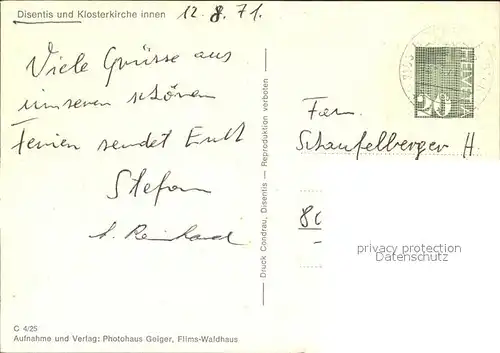 Disentis und Klosterkirche innen
12.8.71.
Viele Grüsse aus
unseren schönen
Ferien sendet Euch
Stefan
Reinhard
Druck Condrau, Disentis — Reproduktion verboten
HELVETIA
20
Fam.
Schaufelberger H.
8
privacy protection
Datenschutz
C 4/25
Aufnahme und Verlag: Photohaus Geiger, Flims-Waldhaus